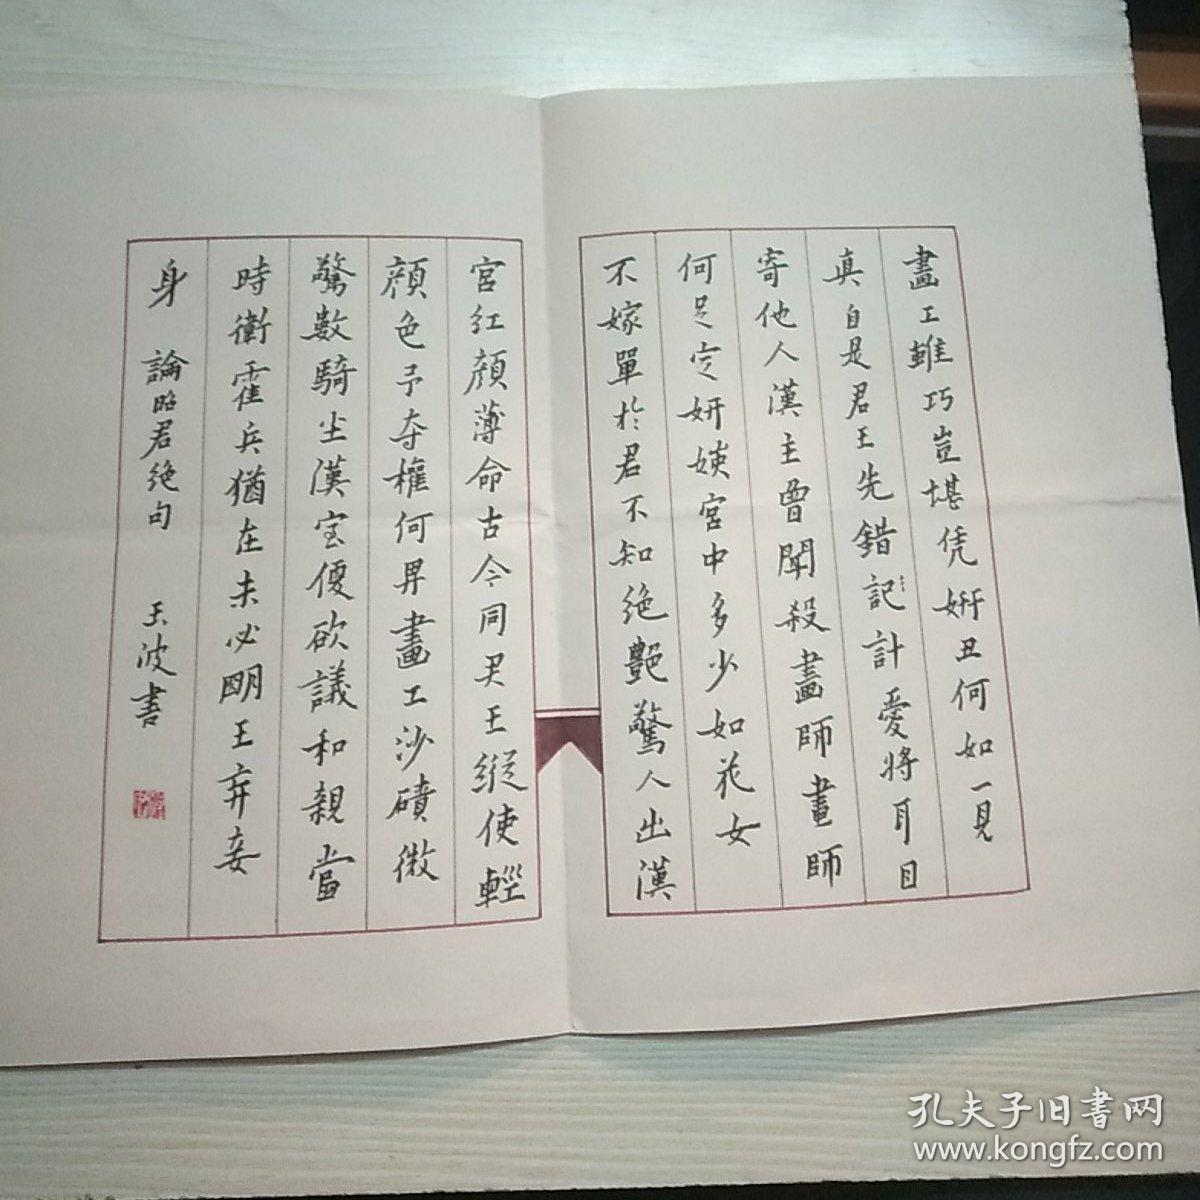 畫工雖巧豈堪凭妍丑何如一見
真自是君王先錯記計愛將耳目
寄他人漢主曾聞殺畫師畫師
何足定妍媸宮中多少如花女
不嫁單於君不知絶艷驚人出漢
宮紅顏薄命古今同君王縱使輕
顏色予夺權何畀畫工沙磧微
驚數騎尘漢室便欲議和親當
時衛霍兵猶在未必明王弃妾
身 論昭君絶句 王波書
孔夫子旧書网
www.kongfz.com